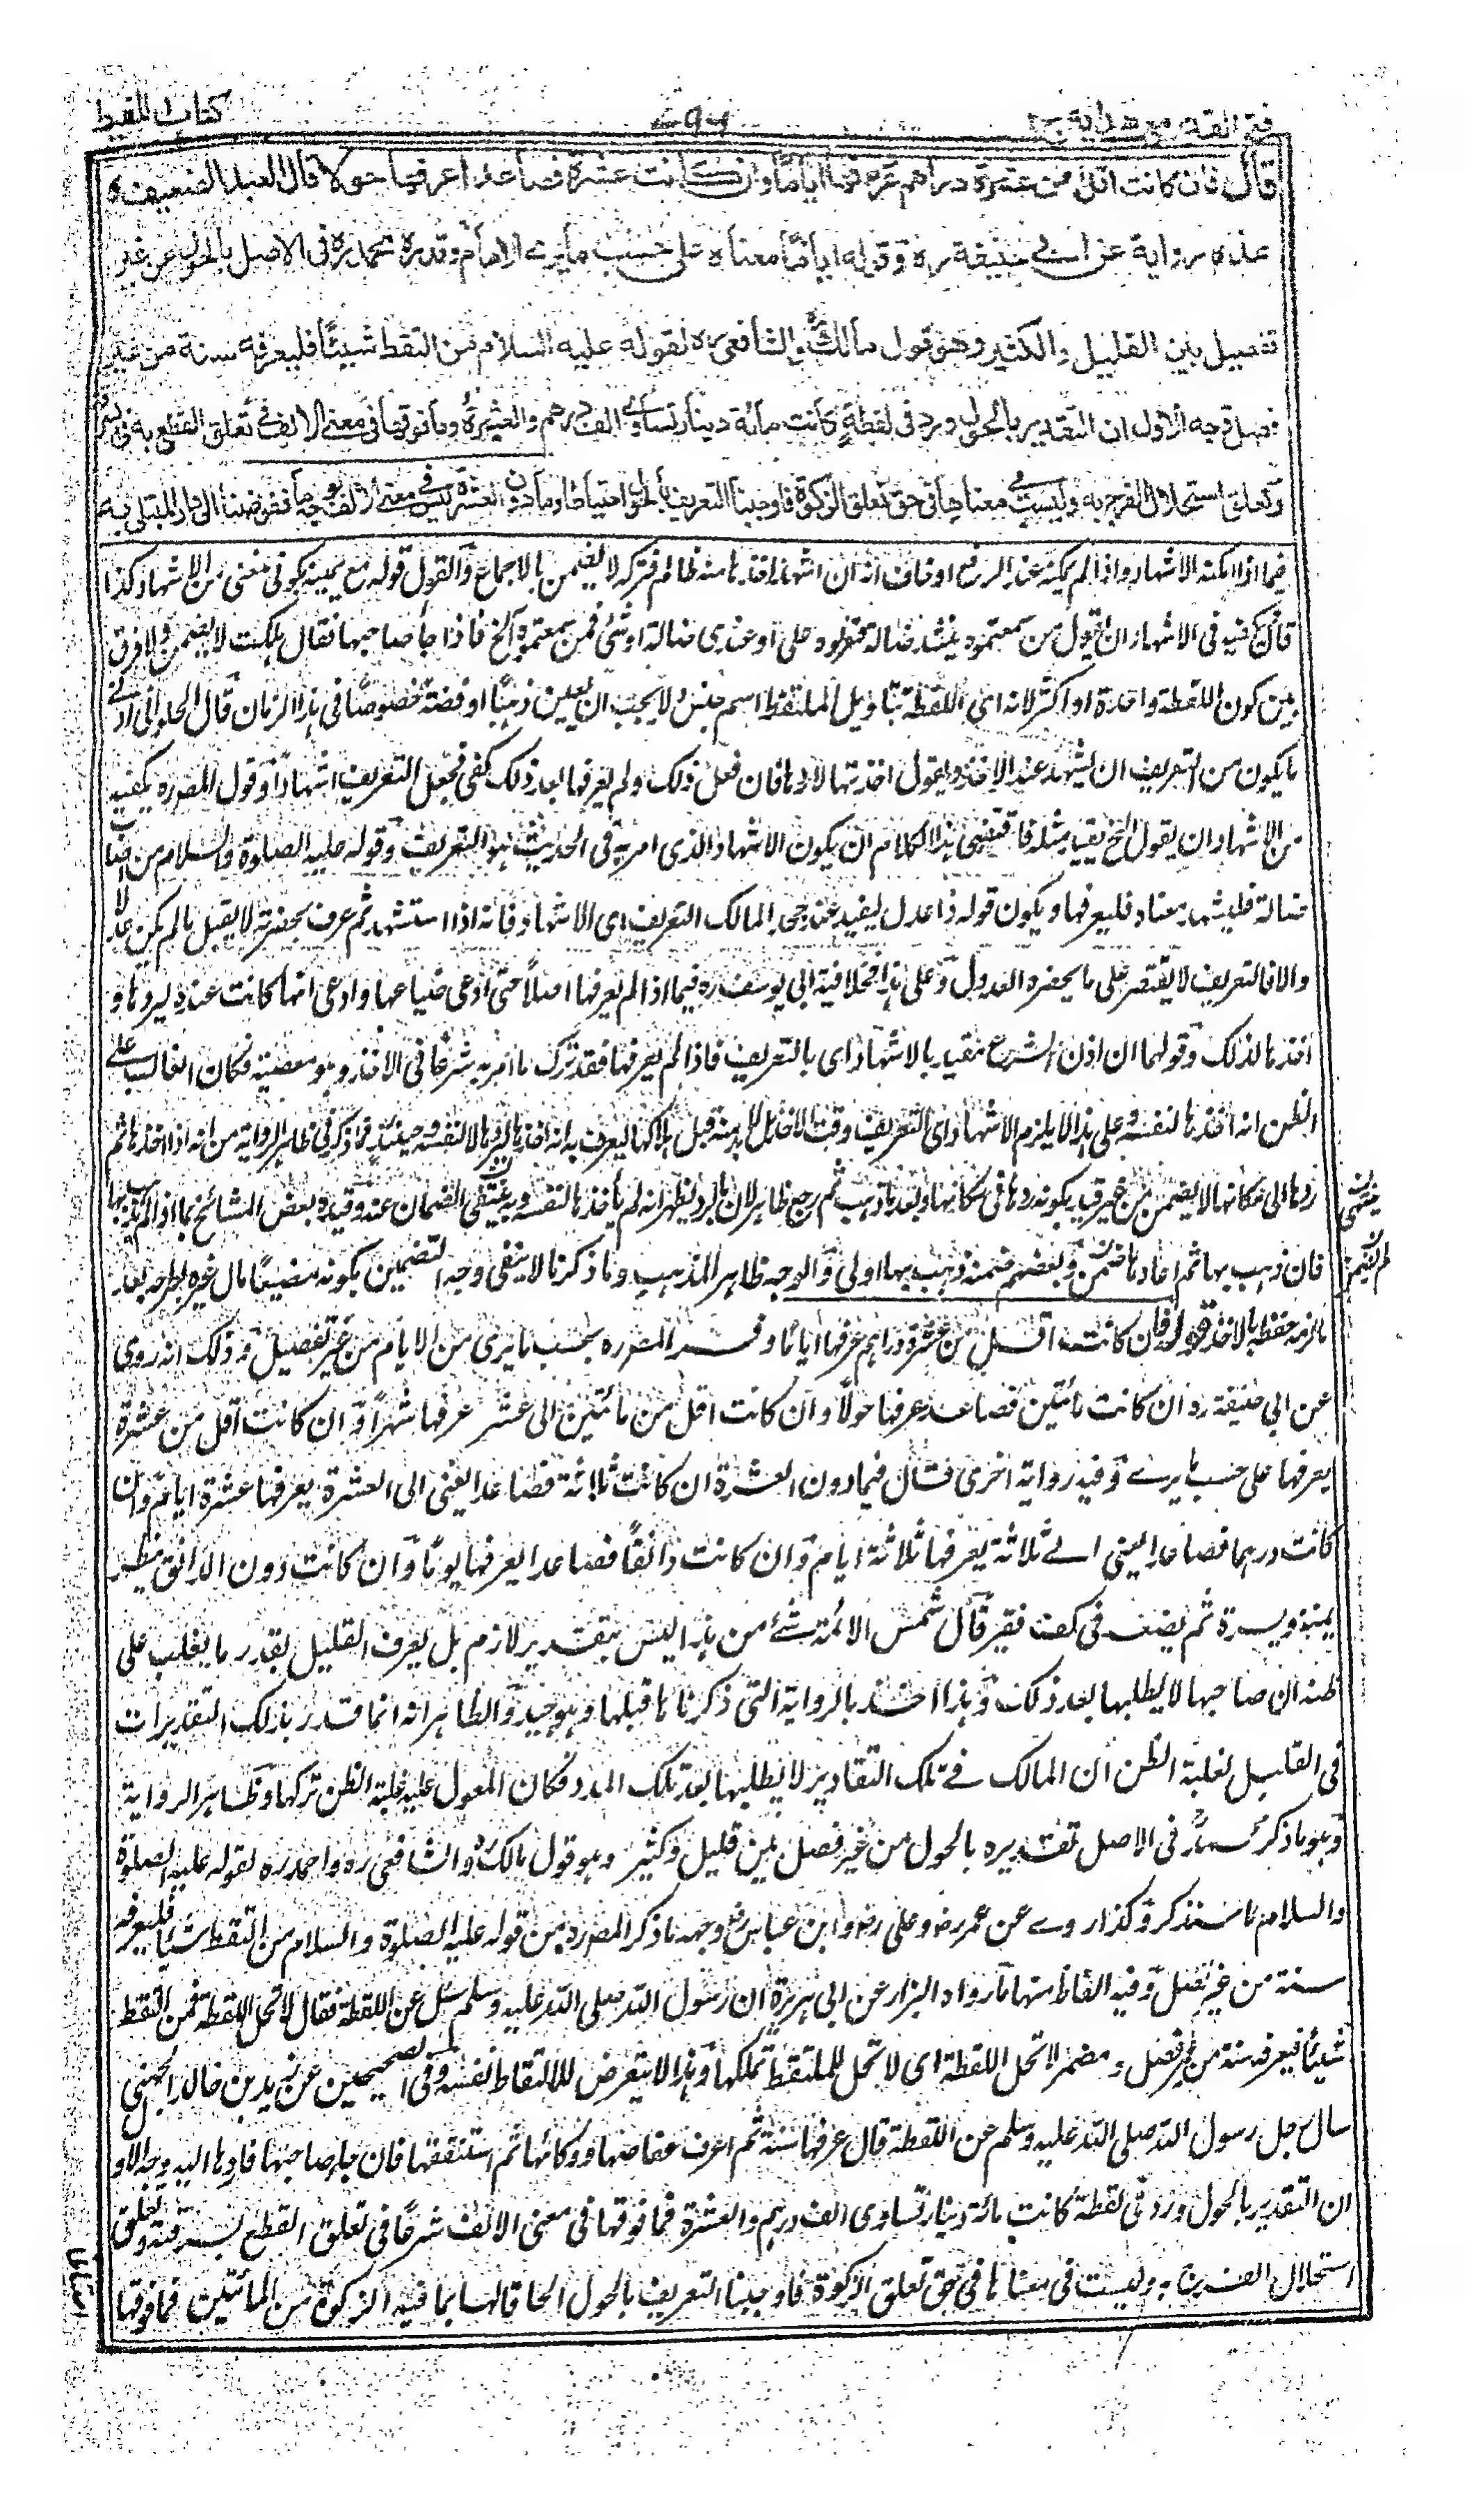 فتح القدير مع هداية ج ٢
٧٩٦
كتاب اللقيط
قال فان كانت اقل من عشرة دراهم عرفها اياما وان كانت عشرة فصاعدا عرفها حولا قال العبد الضعيف
هذه رواية عن ابي حنيفة ره وقوله اياما معناه على حسب ما يرى الامام وقدره محمد ره في الاصل بالحول من غير
تفصيل بين القليل والكثير وهو قول مالك والشافعي ره لقوله عليه السلام من التقط شيئا فليعرفه سنة من غير
فصل وجه الاول ان التقدير بالحول ورد في لقطة كانت مائة دينار تساوي الف درهم والعشرة وما فوقها في معنى الالف في تعلق القطع به في السرقة
وتعلق استحلال الفرج به وليست في معناها في حق تعلق الزكوة فاوجبنا التعريف بالحول احتياطا وما دون العشرة ليس في معنى الالف بوجه ما ففوضنا الى راى المبتلى به
فيما اذا امكنه الاشهاد واذا لم يمكنه عند الرفع او خاف انه ان اشهد اخذها منه ظالم فتركه لا يضمن بالاجماع والقول قوله مع يمينه كوني منعني من الاشهاد كذا
قال يكفيه في الاشهاد ان يقول من سمعتموه ينشد ضالة فدلوه على او عندي ضالة او شئ فمن سمعتموه الخ فاذا جاء صاحبها فقال هلكت لا يضمن ولا فرق
بين كون اللقطة واحدة او اكثر لانه اي اللقطة بتاويل الملتقط اسم جنس لا يجب ان يعين ذهبا او فضة خصوصا في هذا الزمان قال الحلواني ادنى
ما يكون من التعريف ان يشهد عند الاخذ ويقول اخذتها لاردها فان فعل ذلك ولم يعرفها بعد ذلك كفى فجعل التعريف اشهادا وقول المصره يكفيه
من الاشهاد ان يقول الخ يفيد مثله فاقتضى هذا الكلام ان يكون الاشهاد الذي امر به في الحديث هو التعريف وقوله عليه الصلوة والسلام من اصاب
ضالة فليشهد معناه فليعرفها ويكون قوله ذا عدل ليفيد عند جحد المالك التعريف اي الاشهاد فانه اذا استشهد ثم عرف بحضرته لا يقبل ما لم يكن عدلا
والا فالتعريف لا يقتصر على ما يحضره العدول وعلى هذا فخلافية ابي يوسف ره فيما اذا لم يعرفها اصلا حتى ادعى ضياعها وادعى انها كانت عنده ليردها و
اخذها لذلك وقولهما ان اذن الشرع مقيد بالاشهاد اي بالتعريف فاذا لم يعرفها فقد ترك ما امر به شرعا في الاخذ وهو معصية فكان الغالب على
الظن انه اخذها لنفسه وعلى هذا لا يلزم الاشهاد اي التعريف وقت الاخذ بل لا بد منه قبل هلاكها ليعرف به انه اخذها ليردها لا لنفسه وحينئذ فما ذكر في ظاهر الرواية من انه اذا اخذها ثم
ردها الى مكانها لا يضمن من غير قيد بكونه ردها في مكانها او بعد ما ذهب ثم رجع ظاهر لان بالرد يظهر انه لم ياخذها لنفسه وبه ينتفي الضمان عنه وقيده بعض المشائخ بما اذا لم يذهب بها
فان ذهب بها ثم اعادها ضمن وبعضهم ضمنه ذهب بها اولى والوجه ظاهر المذهب وما ذكرنا لا ينفي وجه التضمين بكونه مضيعا مال غيره بطرحه بعد
ما لزمه حفظه بالاخذ قوله فان كانت اقل من عشرة دراهم عرفها اياما وفسر المصره بحسب ما يرى من الايام من غير تفصيل وذلك انه روى
عن ابي حنيفة ره ان كانت مائتين فصاعدا عرفها حولا وان كانت اقل من مائتين الى عشر عرفها شهرا وان كانت اقل من عشرة
يعرفها على حسب ما يرى وفيه رواية اخرى قال فيما دون العشرة ان كانت ثلاثة فصاعدا يعني الى العشرة يعرفها عشرة ايام وان
كانت درهما فصاعدا يعني الى ثلاثة يعرفها ثلاثة ايام وان كانت دانقا فصاعدا يعرفها يوما وان كانت دون الدانق ينظر
يمنة ويسرة ثم يضعه في كف فقير قال شمس الائمة شئ من هذا ليس بتقدير لازم بل يعرف القليل بقدر ما يغلب على
ظنه ان صاحبها لا يطلبها بعد ذلك وهذا اخذ بالرواية التي ذكرناها قبلها وهو جيد والظاهر انه انما قدر بتلك التقديرات
في القليل لغلبة الظن ان المالك في تلك التقادير لا يطلبها بعد تلك المدد فكان المعول عليه غلبة الظن تركها وظاهر الرواية
وهو ما ذكر محمد في الاصل تقديره بالحول من غير فصل بين قليل وكثير وهو قول مالك ره والشافعي ره واحمد ره لقوله عليه الصلوة
والسلام ما سنذكر وكذا روى عن عمر رض وعلي رض وابن عباس رض وجهه ما ذكر المصره من قوله عليه الصلوة والسلام من التقط شيئا فليعرفه
سنة من غير فصل وفيه الفاظ منها ما رواه البزار عن ابي هريرة ان رسول الله صلى الله عليه وسلم سئل عن اللقطة فقال لا تحل اللقطة فمن التقط
شيئا فليعرفه سنة من غير فصل ومضمر لا تحل اللقطة اي لا تحل للملتقط تملكها وهذا لا يتعرض للالتقاط لنفسه وفي الصحيحين عن زيد بن خالد الجهني
سال رجل رسول الله صلى الله عليه وسلم عن اللقطة قال عرفها سنة ثم اعرف عفاصها ووكائها ثم استنفقها فان جاء صاحبها فادها اليه وجه الاول
ان التقدير بالحول ورد في لقطة كانت مائة دينار تساوى الف درهم والعشرة فما فوقها في معنى الالف شرعا في تعلق القطع بسرقته وتعلق
استحلال الفرج به وليست في معناها في حق تعلق الزكوة فاوجبنا التعريف بالحول الحاقا لها بما فيه الزكوة من المائتين فما فوقها